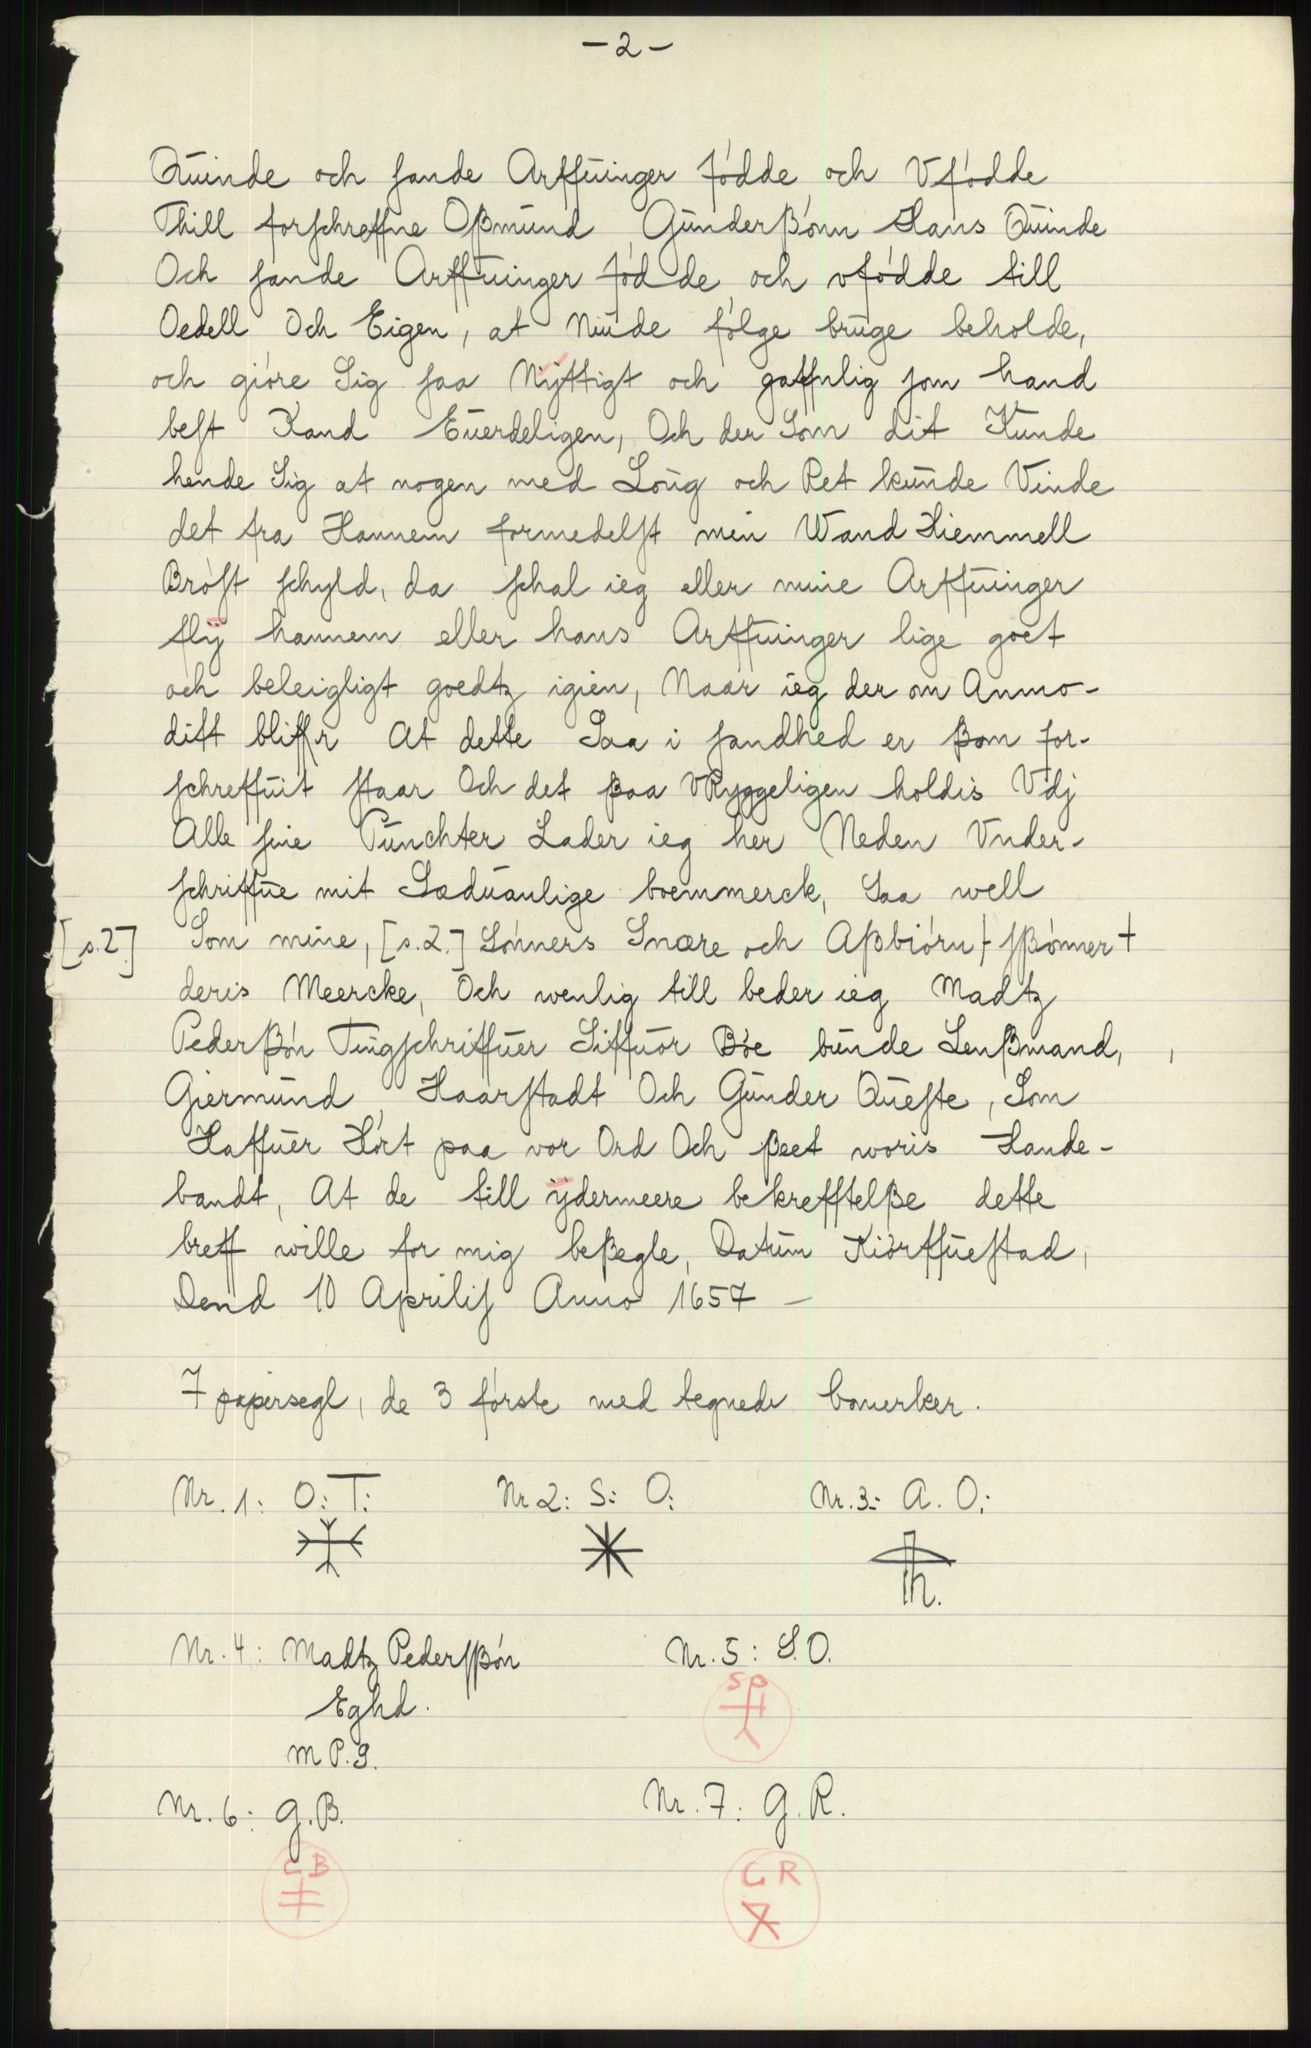 - 2 -
Quinde och sande Arffuinger fódde och Vfódde
Thill forschreffne Oßmund Gunderßónn Hans Quinde
Och sande Arffuinger fódde och vfódde till
Oedell Och Eigen, at Niude fólge bruge beholde,
och gióre Sig saa Nÿttigt och gaffnlig som hand
best Kand Euerdeligen, Och der Som dit Kunde
hende Sig at nogen med Loug och Ret kunde Vinde
det fra Hannem formedelst min Wand Hiemmell
Bróst schyld, da schal ieg eller mine Arffuinger
flÿ hannem eller hans Arffuinger lige goet
och beleigligt goedtz igien, Naar ieg der om Anmo-
dist bliffr At dette Saa i sandhed er ßom for-
schreffuit staar Och det ßaa VRyggeligen holdis Vdj
Alle sine Punchter Lader ieg her Neden Vnder-
schriffue mit Sæduanlige boemmerck, Saa well
[s.2] Som mine, [s.2.] Sónners Snare och Aßbiórn + sßónner +
deris Meercke, Och wenlig till beder ieg Madtz
Pederßón Tingschriffuer Siffuor Bóe bunde Lenßmand,
Giermund Haarstadt Och Gunder Queste, Som
Haffuer Hórt paa vor Ord Och ßeet woris Hande-
bandt, At de till ÿdermeere bekrefftelße dette
breff wille for mig beßegle, Datum Kiórffuestad,
Dend 10 Aprilis Anno 1657 -
7 papersegl, de 3 fórste med tegnede bomerker.
Nr. 1: O: T: Nr 2: S: O: Nr. 3: A. O:
Nr. 4: Madtz Pedersßón Nr. 5: S. O.
SP
Eghd.
m P. S.
Nr. 6: G. B. Nr. 7: G. R.
C B G R